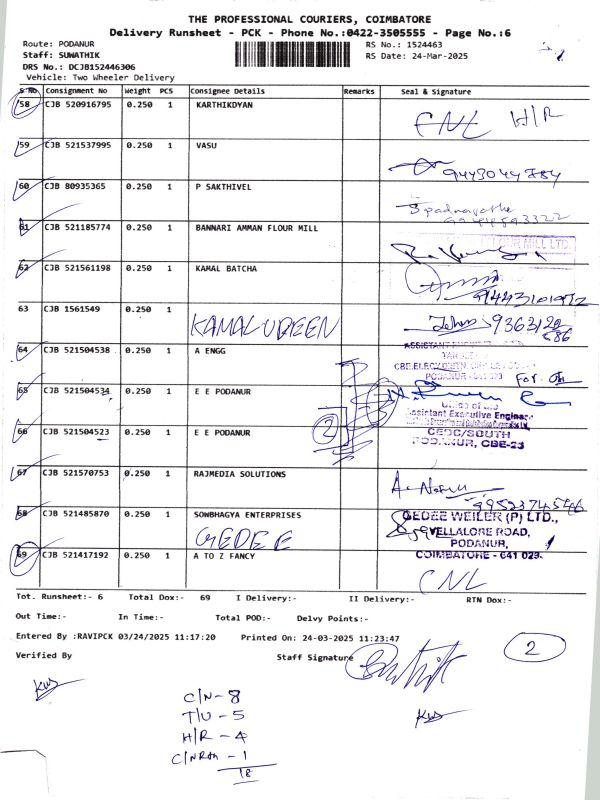 THE PROFESSIONAL COURIERS, COIMBATORE
Delivery Runsheet - PCK - Phone No.:0422-3505555 - Page No.:6
Route: PODANUR
RS No.: 1524463
Staff: SUWATHIK
RS Date: 24-Mar-2025
DRS No.: DCJB152446306
Vehicle: Two Wheeler Delivery
S No Consignment No Weight PCS Consignee Details Remarks Seal & Signature
58 CJB 520916795 0.250 1 KARTHIKDYAN CNL H/R
59 CJB 521537995 0.250 1 VASU 9443044784
60 CJB 80935365 0.250 1 P SAKTHIVEL
61 CJB 521185774 0.250 1 BANNARI AMMAN FLOUR MILL FLOUR MILL LTD.
62 CJB 521561198 0.250 1 KAMAL BATCHA
63 CJB 1561549 0.250 1 KAMALUDEEN
64 CJB 521504538 0.250 1 A ENGG
PODANUR
For
65 CJB 521504534 0.250 1 E E PODANUR
Office of the
Assistant Executive Engineer
66 CJB 521504523 0.250 1 E E PODANUR 2
CEDC/SOUTH
PODANUR, CBE-23
67 CJB 521570753 0.250 1 RAJMEDIA SOLUTIONS
68 CJB 521485870 0.250 1 SOWBHAGYA ENTERPRISES
GEDEE
GEDEE WEILER (P) LTD.,
VELLALORE ROAD,
PODANUR,
COIMBATORE - 641 023.
69 CJB 521417192 0.250 1 A TO Z FANCY
CNL
Tot. Runsheet:- 6 Total Dox:- 69 I Delivery:- II Delivery:- RTN Dox:-
Out Time:- In Time:- Total POD:- Delvy Points:-
Entered By :RAVIPCK 03/24/2025 11:17:20 Printed On: 24-03-2025 11:23:47
Verified By Staff Signature 2
C/N - 8
T/U - 5
H/R - 4
- 1
18